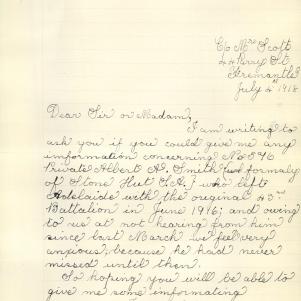 C/o Mrs Scott
24 Parry St.
Fremantle
July 4th 1918
Dear Sir or Madam,
I am writing to
ask you if you could give me any
information concerning No 596
Private Albert A. Smith, formaly
of Stone Hut S.A.; who left
Adelaide with the original 43rd
Battalion in June 1916; and owing
to us at not hearing from him
since last March we feel very
anxious, because he had never
missed until then.
So hoping you will be able to
give me some informating